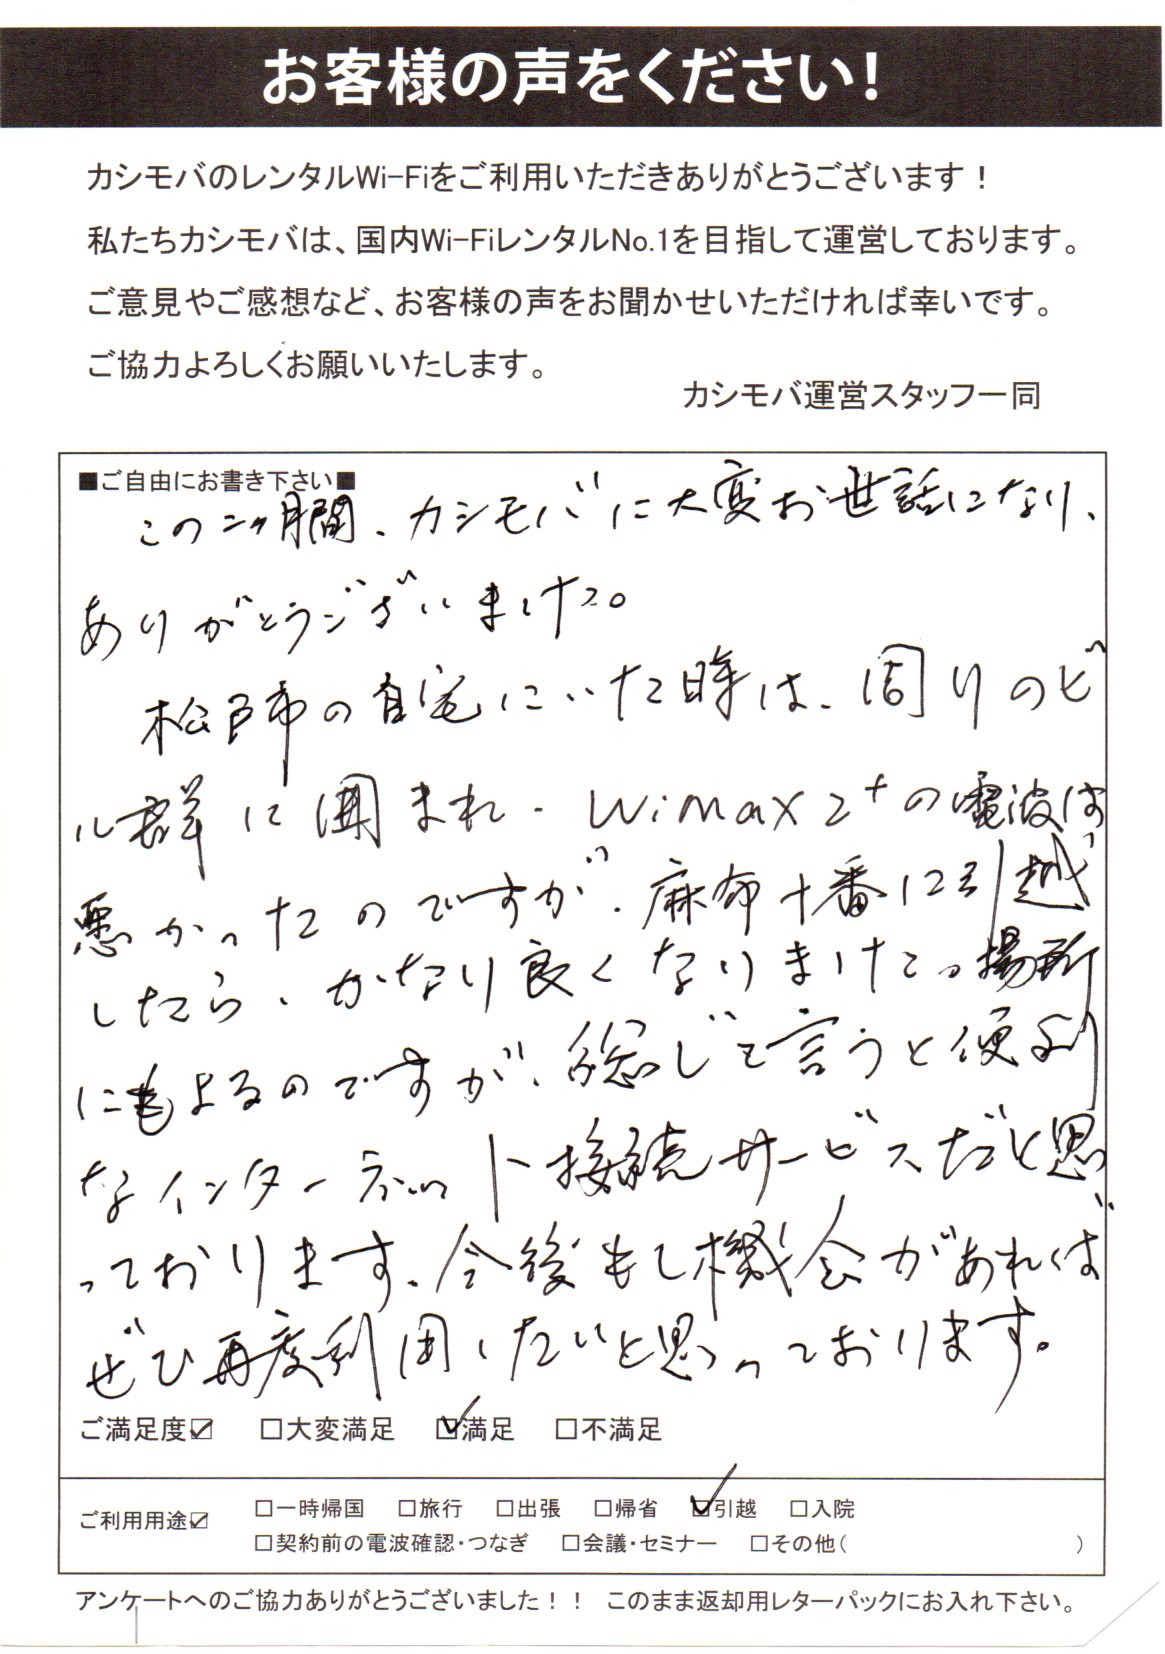 お客様の声をください!
カシモバのレンタルWi-Fiをご利用いただきありがとうございます！
私たちカシモバは、国内Wi-FiレンタルNo.1を目指して運営しております。
ご意見やご感想など、お客様の声をお聞かせいただければ幸いです。
ご協力よろしくお願いいたします。
カシモバ運営スタッフ一同
■ご自由にお書き下さい■
この二ヶ月間、カシモバに大変お世話になり、
ありがとうございました。
松戸市の自宅にいた時は、周りのビ
ル群に囲まれ、WiMax2+の電波は
悪かったのですが、麻布十番に引越
したら、かなり良くなりました。場所
にもよるのですが、総じて言うと便利
なインターネット接続サービスだと思
っております。今後もし機会があれば
ぜひ再度利用したいと思っております。
ご満足度☑ □大変満足 ☑満足 □不満足
ご利用用途☑ □一時帰国 □旅行 □出張 □帰省 ☑引越 □入院
□契約前の電波確認・つなぎ □会議・セミナー □その他( )
アンケートへのご協力ありがとうございました！！ このまま返却用レターパックにお入れ下さい。